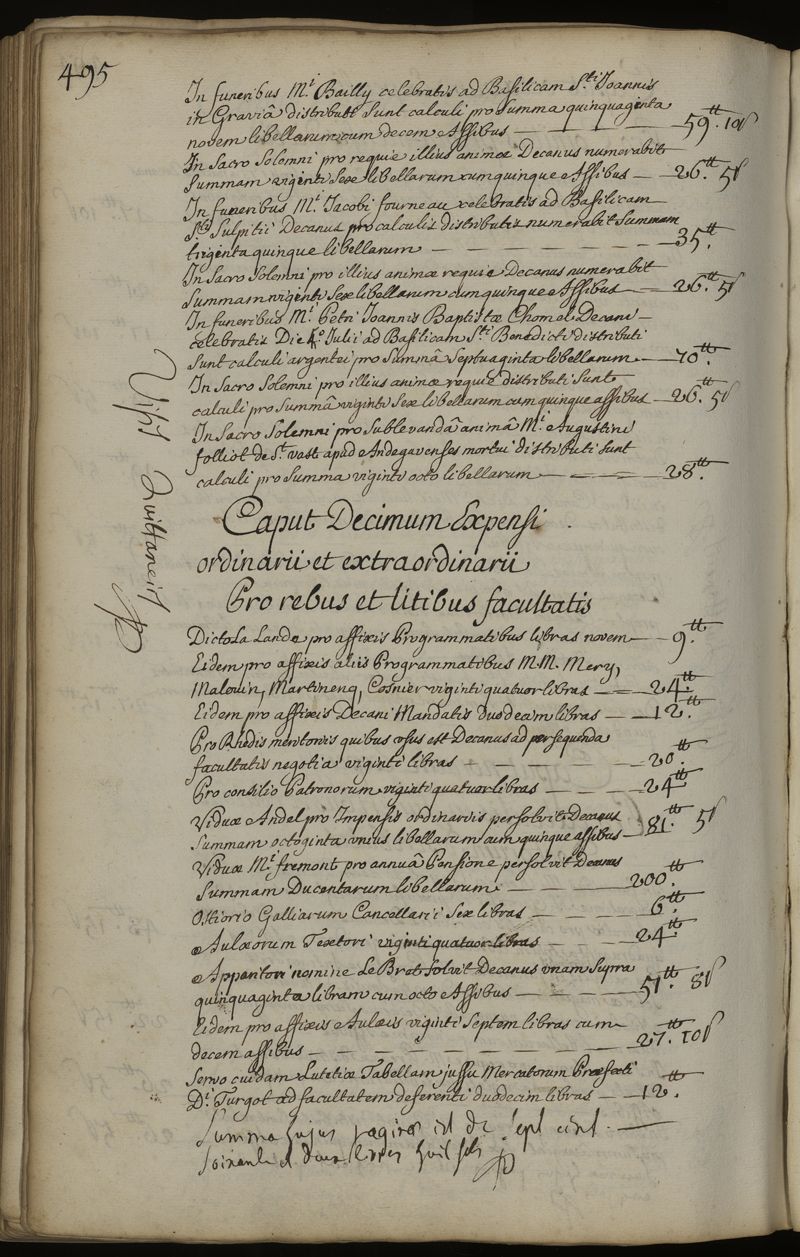 495
In funeribus M.^i Bailly celebratis ad Basilicam S.^ti Joannis
in Graviâ distributi Sunt calculi pro Summa quinquaginta
novem libellarum cum decem assibus — 59.^tt 10ſ
In Sacro Solemni pro requie illius animæ Decanus numerabit
Summam viginti Sex libellarum cum quinque assibus — 26.^tt 5ſ
In funeribus M.^i Jacobi fourneau celebratis ad Basilicam
S.^ti Sulpitii Decanus pro calculis distributis numerabit Summam
triginta quinque libellarum — 35.^tt
In Sacro Solemni pro illius animæ requie Decanus numerabit
Summam viginti Sex libellarum cum quinque assibus — 26.^tt 5ſ
In funeribus M.^i Petri Joannis Baptistæ Chomel Decani
celebratis Die 4.^o Julii ad Basilicam S.^ti Benedicti distributi
Sunt calculi argentei pro Summâ Septuaginta libellarum — 70.^tt
In Sacro Solemni pro illius animæ requie distributi Sunt
calculi pro Summâ viginti Sex libellarum cum quinque assibus — 26.^tt 5ſ
In Sacro Solemni pro Sublevandâ animâ M.^i Augustini
folliot de S.^t vast apud Andegavenses mortui distributi sunt
calculi pro Summa viginti octo libellarum — 28.^tt
Caput Decimum Expensi
ordinarii et extraordinarii
Pro rebus et litibus facultatis
Dicto La Lande pro affixis Programmatibus libras novem — 9.^tt
Eidem pro affixis aliis Programmatibus M.M. Mery,
Malouin, Martinenq, Cosnier viginti quatuor libras — 24.^tt
Eidem pro affixis Decani Mandatis duodecim libras — 12.^tt
Pro Rhedis meritoriis quibus usus est Decanus ad persequenda
facultatis negotia viginti libras — 20.^tt
Pro consilio Patronorum viginti quatuor libras — 24^tt
Viduæ Andel pro Impensis ordinariis persolvit Decanus
Summam octoginta unius libellarum cum quinque assibus — 81.^tt 5ſ
Viduæ M.^i fremont pro annuâ Pensione persolvit Decanus
Summam Ducentarum libellarum — 200.^tt
Ostiario Galliarum Cancellarii Sex libras — 6.^tt
Aulæorum Textori viginti quatuor libras — 24^tt
Apparitori nomine Le Bret Solvit Decanus unam Supra
quinquaginta libram cum octo Assibus — 51.^tt 8ſ
Eidem pro affixis Aulæis viginti Septem libras cum
decem assibus — 27.^tt 10ſ
Servo cuidam Lutetiæ Tabellam jussu Mercatorum Præfecti
D.^i Turgot ad facultatem deferenti duodecim libras — 12.^tt
Summa hujus paginæ est de Sept cent
soixante et deux livres huit sols
Visis Quittanciis